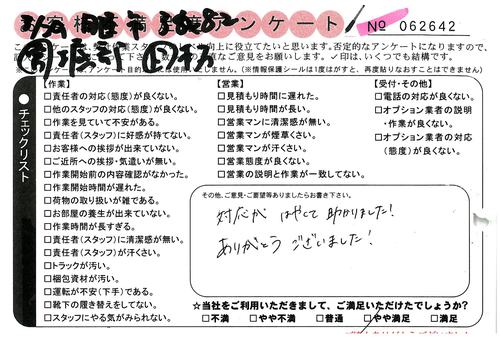 お客様満足度アンケート
№ 062642
このアンケートは、
に役立てたいと思います。否定的なアンケートになりますので、
ご意見をお願いします。✓印は、いくつでも結構です。
(※情報保護シールは1度はがすと、再度貼りなおすことはできません)
●チェックリスト
【作業】
□責任者の対応(態度)が良くない。
□他のスタッフの対応(態度)が良くない。
□作業を見ていて不安がある。
□責任者(スタッフ)に好感が持てない。
□お客様への挨拶が出来ていない。
□ご近所への挨拶・気遣いが無い。
□作業開始前の内容確認がなかった。
□作業開始時間が遅れた。
□荷物の取り扱いが雑である。
□お部屋の養生が出来ていない。
□作業時間が長すぎる。
□責任者(スタッフ)に清潔感が無い。
□責任者(スタッフ)が汗くさい。
□トラックが汚い。
□梱包資材が汚い。
□運転が不安(下手)である。
□靴下の履き替えをしてない。
□スタッフにやる気がみられない。
【営業】
□見積もり時間に遅れた。
□見積もり時間が長い。
□営業マンに清潔感が無い。
□営業マンが煙草くさい。
□営業マンが汗くさい。
□営業態度が良くない。
□営業の説明と作業が一致してない。
【受付・その他】
□電話の対応が良くない。
□オプション業者の説明
・作業が良くない。
□オプション業者の対応
(態度)が良くない。
その他、ご意見・ご要望等ありましたらお書き下さい。
対応が はやくて 助かりました!
ありがとう ございました!
☆当社をご利用いただきまして、ご満足いただけたでしょうか?
□不満 □やや不満 □普通 □やや満足 □満足